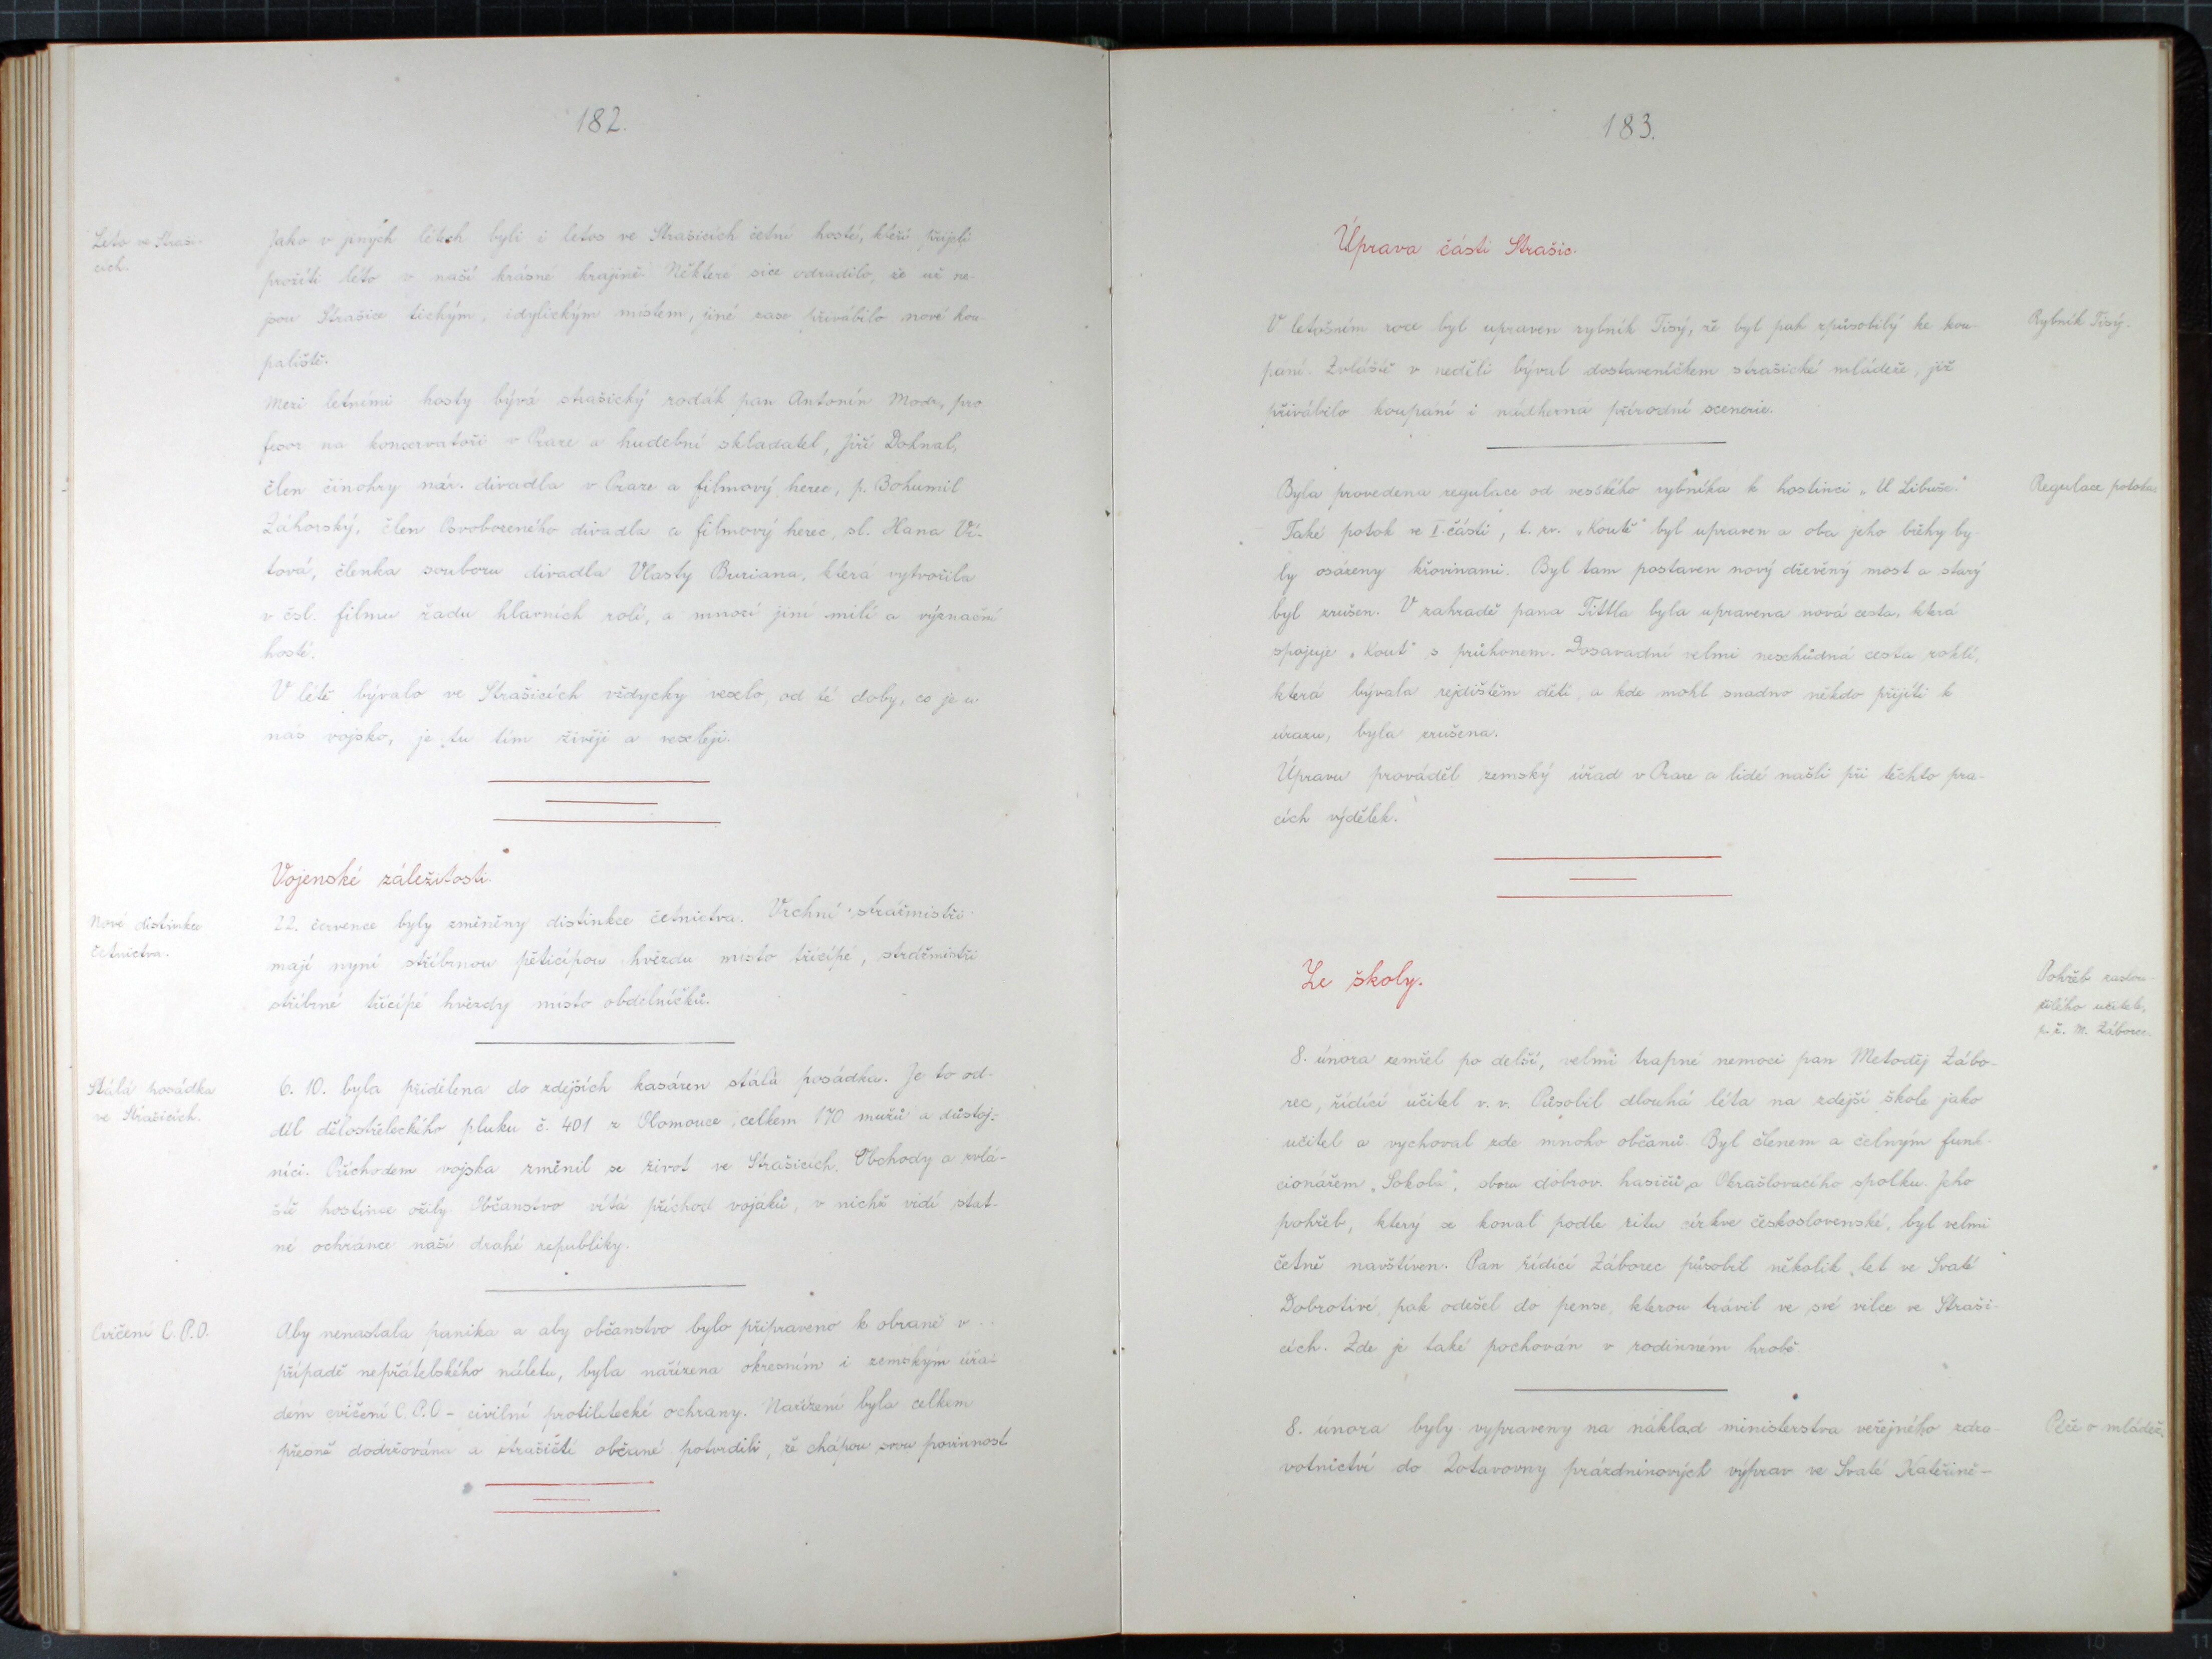 182.
Léto ve Straši-
cích.
Jako v jiných létech byli i letos ve Strašicích četní hosté, kteří přijeli
prožíti léto v naší krásné krajině. Některé sice odradilo, že už ne-
jsou Strašice tichým, idylickým místem, jiné zase přivábilo nové kou-
paliště.
Mezi letními hosty bývá strašický rodák pan Antonín Modr, pro
fesor na konservatoři v Praze a hudební skladatel, Jiří Dohnal,
člen činohry nár. divadla v Praze a filmový herec, p. Bohumil
Záhorský, člen Osvobozeného divadla a filmový herec, sl. Hana Ví-
tová, členka souboru divadla Vlasty Buriana, která vytvořila
v čsl. filmu řadu hlavních rolí, a mnozí jiní milí a význační
hosté.
V létě bývalo ve Strašicích vždycky veselo, od té doby, co je u
nás vojsko, je tu tím živěji a veseleji.
Vojenské záležitosti.
Nové distinkce
četnictva.
22. července byly změněny distinkce četnictva. Vrchní strážmistři
mají nyní stříbrnou pěticípou hvězdu místo třícípé, strážmistři
stříbrné třícípé hvězdy místo obdélníčků.
Stálá posádka
ve Strašicích.
6. 10. byla přidělena do zdejších kasáren stálá posádka. Je to od-
díl dělostřeleckého pluku č. 401 z Olomouce, celkem 170 mužů a důstoj-
níci. Příchodem vojska změnil se život ve Strašicích. Obchody a zvlá-
ště hostince ožily. Občanstvo vítá příchod vojáků, v nichž vidí stat-
né ochránce naší drahé republiky.
Cvičení C.P.O.
Aby nenastala panika a aby občanstvo bylo připraveno k obraně v
případě nepřátelského náletu, byla nařízena okresním i zemským úřa-
dem cvičení C.P.O - civilní protiletecké ochrany. Nařízení byla celkem
přesně dodržována a strašičtí občané potvrdili, že chápou svou povinnost
183.
Úprava části Strašic.
Rybník Tisý.
V letošním roce byl upraven rybník Tisý, že byl pak způsobilý ke kou-
pání. Zvláště v neděli býval dostaveníčkem strašické mládeže, již
přivábilo koupání i nádherná přírodní scenerie.
Regulace potoka
Byla provedena regulace od veského rybníka k hostinci „U Libuše."
Také potok ve I. části, t. zv. „Koutě" byl upraven a oba jeho břehy by
ly osázeny křovinami. Byl tam postaven nový dřevěný most a starý
byl zrušen. V zahradě pana Tittla byla upravena nová cesta, která
spojuje „Kout" s průhonem. Dosavadní velmi neschůdná cesta rohlí,
která bývala rejdištěm dětí, a kde mohl snadno někdo přijíti k
úrazu, byla zrušena.
Úpravu prováděl zemský úřad v Praze a lidé našli při těchto pra-
cích výdělek.
Ze školy.
Pohřeb zaslou-
žilého učitele,
p. ř. M. Záborce.
8. února zemřel po delší, velmi trapné nemoci pan Metoděj Zábo-
rec, řídící učitel v. v. Působil dlouhá léta na zdejší škole jako
učitel a vychoval zde mnoho občanů. Byl členem a čelným funk-
cionářem „Sokola", sboru dobrov. hasičů a Okrašlovacího spolku. Jeho
pohřeb, který se konal podle ritu církve československé, byl velmi
četně navštíven. Pan řídící Záborec působil několik let ve Svaté
Dobrotivé, pak odešel do pense, kterou trávil ve své vilce ve Straši-
cích. Zde je také pochován v rodinném hrobě.
Péče o mládež.
8. února byly vypraveny na náklad ministerstva veřejného zdra-
votnictví do Zotavovny prázdninových výprav ve Svaté Kateřině-